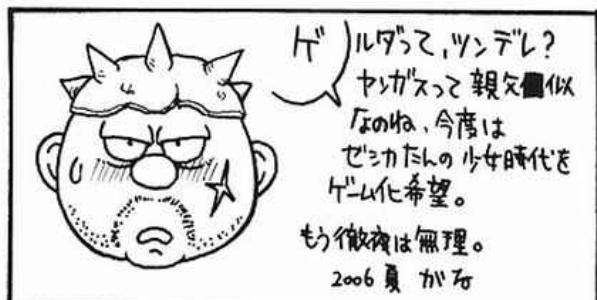 ゲルダって、ツンデレ?
ヤンガスって親父似
なのね、今度は
ゼシカたんの少女時代を
ゲーム化希望。
もう徹夜は無理。
2006 夏 がな